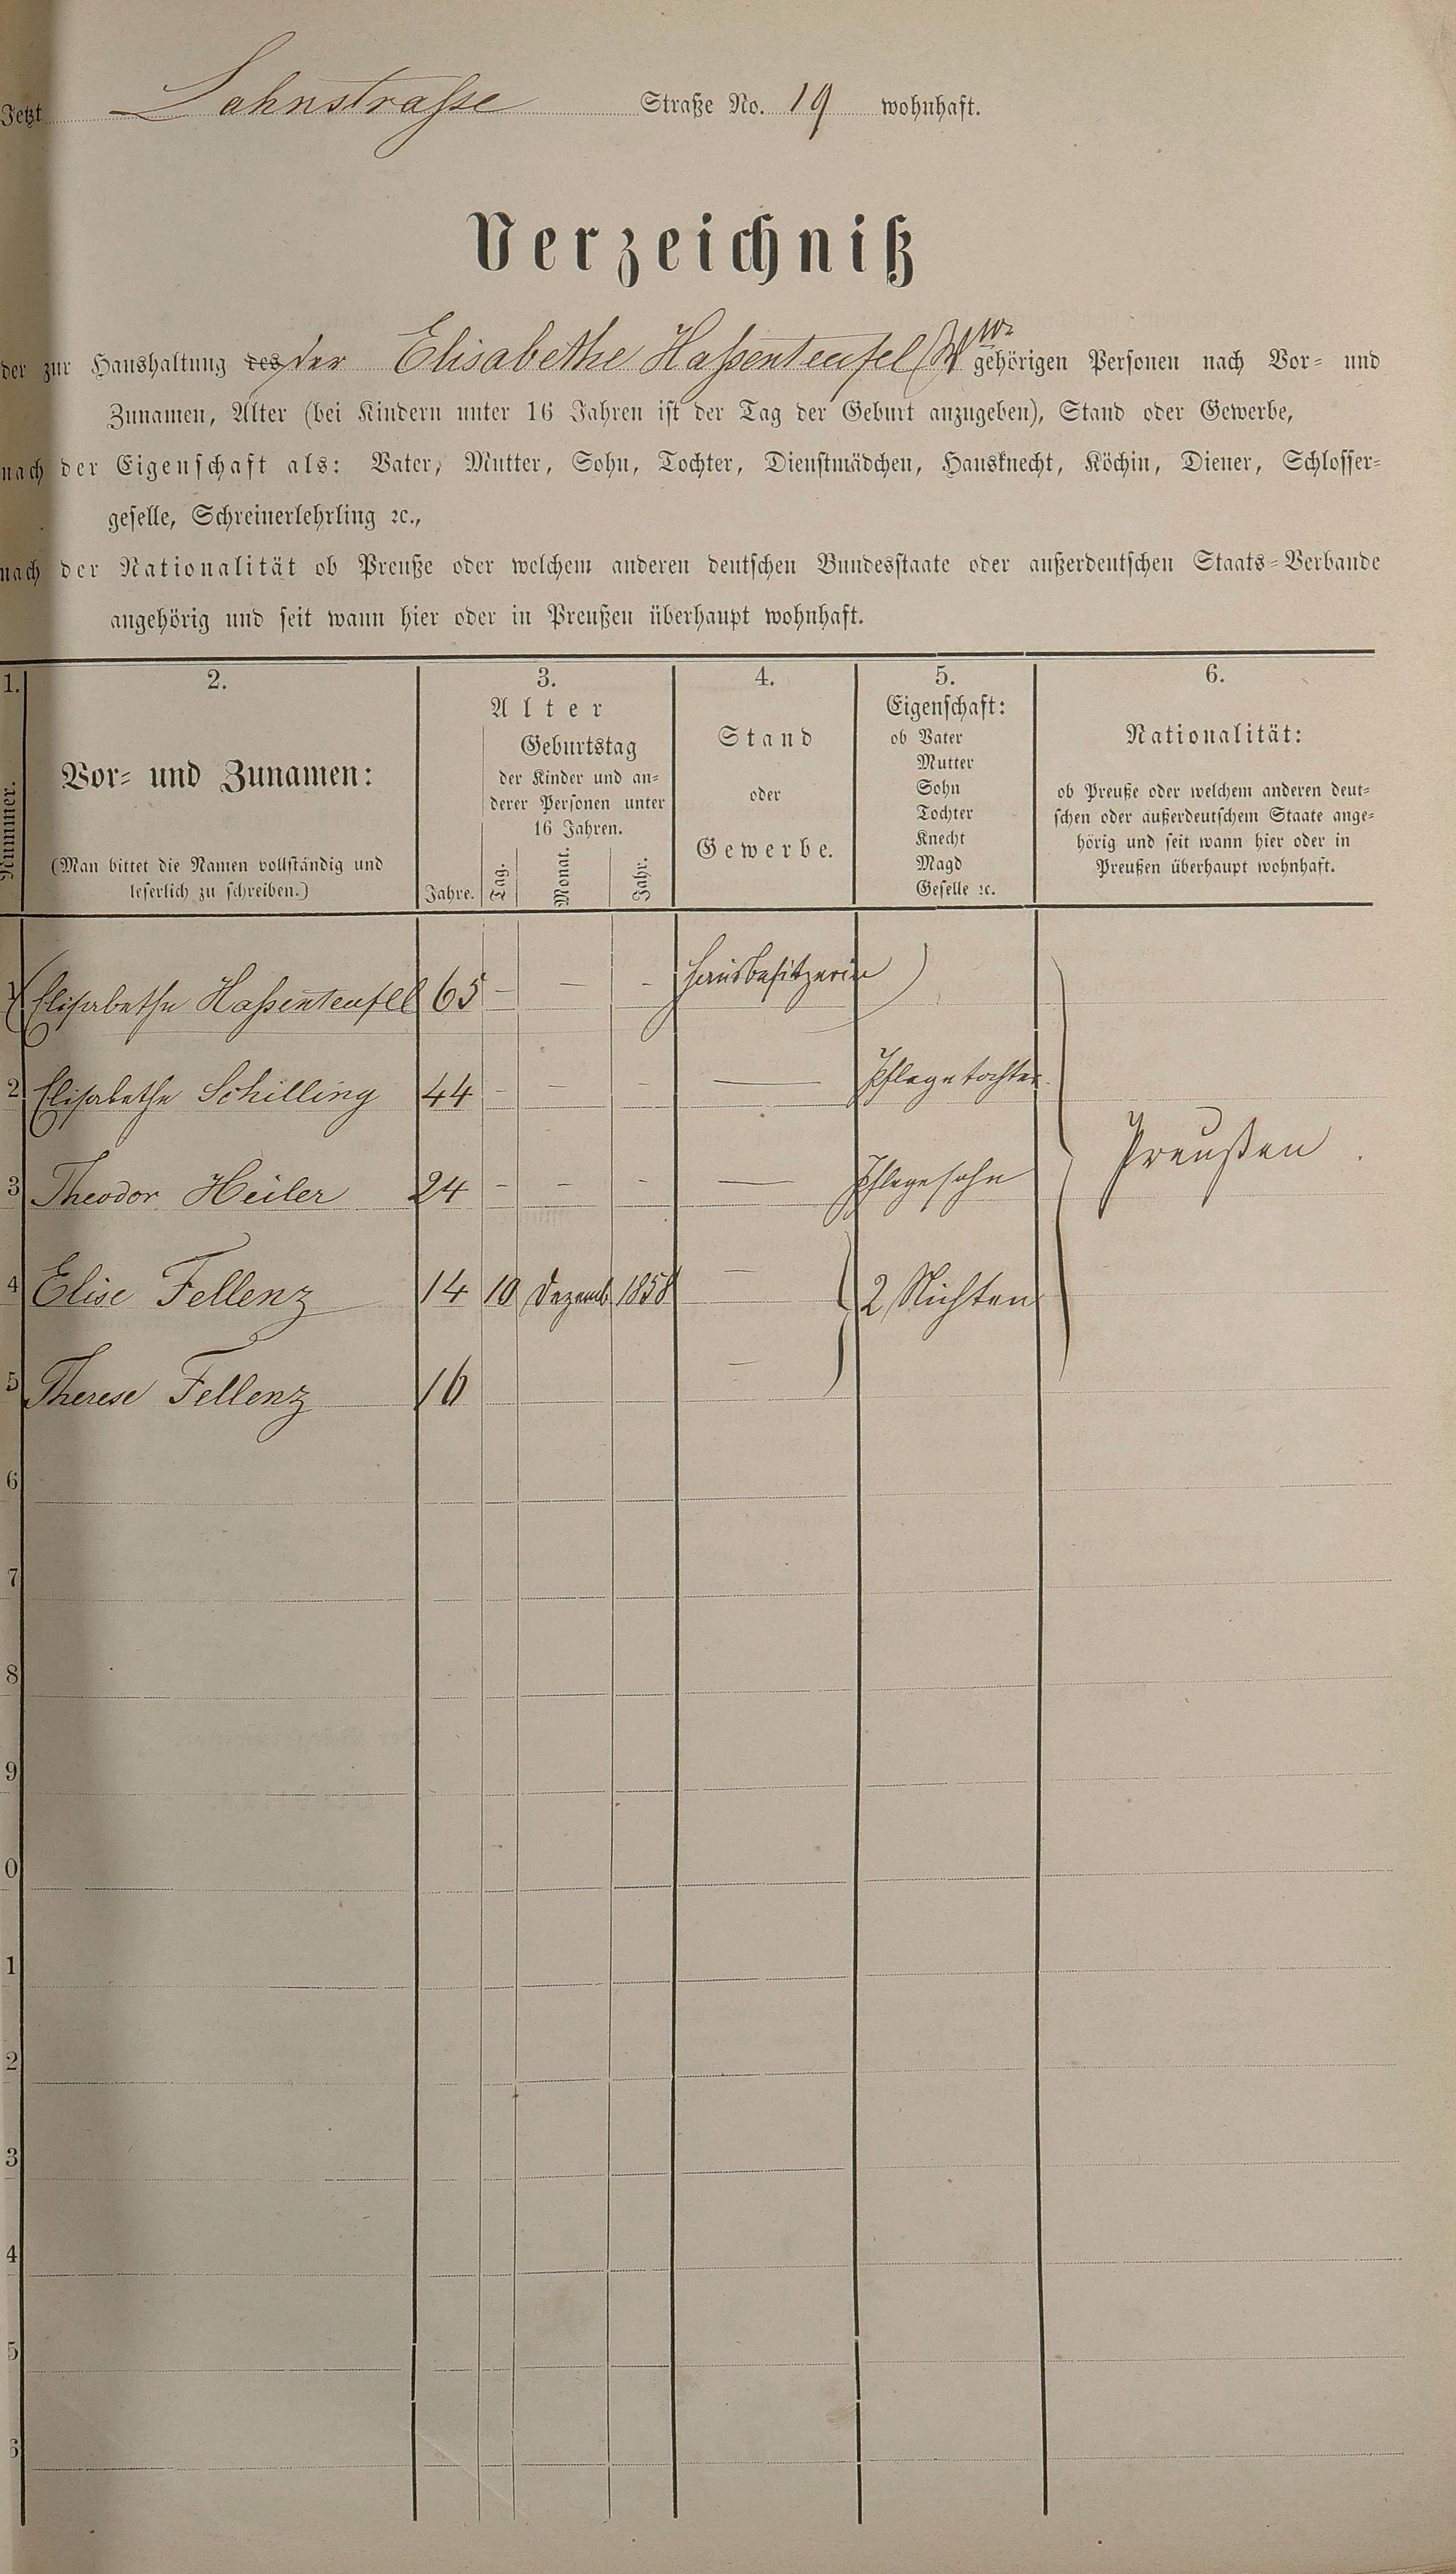 Jetzt Lahnstrasse Straße No. 19 wohnhaft.
Verzeichniß
der zur Haushaltung des der Elisabethe Hassenteufel Wwe gehörigen Personen nach Vor- und
Zunamen, Alter (bei Kindern unter 16 Jahren ist der Tag der Geburt anzugeben), Stand oder Gewerbe,
nach der Eigenschaft als: Vater, Mutter, Sohn, Tochter, Dienstmädchen, Hausknecht, Köchin, Diener, Schlosser-
geselle, Schreinerlehrling ꝛc.,
nach der Nationalität ob Preuße oder welchem anderen deutschen Bundesstaate oder außerdeutschen Staats-Verbande
angehörig und seit wann hier oder in Preußen überhaupt wohnhaft.
1. 2. 3. 4. 5. 6.
Nummer.
Vor- und Zunamen:
(Man bittet die Namen vollständig und
leserlich zu schreiben.)
Alter
Jahre.
Geburtstag
der Kinder und an-
derer Personen unter
16 Jahren.
Tag. Monat. Jahr.
Stand
oder
Gewerbe.
Eigenschaft:
ob Vater
Mutter
Sohn
Tochter
Knecht
Magd
Geselle ꝛc.
Nationalität:
ob Preuße oder welchem anderen deut-
schen oder außerdeutschem Staate ange-
hörig und seit wann hier oder in
Preußen überhaupt wohnhaft.
1 (Elisabethe Hassenteufel 65 - - - Hausbesitzerin )
2 Elisabethe Schilling 44 - - - — Pflegetochter
Preußen
3 Theodor Heiler 24 - - - — Pflegesohn
4 Elise Fellenz 14 10 Dezemb 1858 — 2 Nichten
5 Therese Fellenz 16 —
6
7
8
9
0
1
2
3
4
5
6